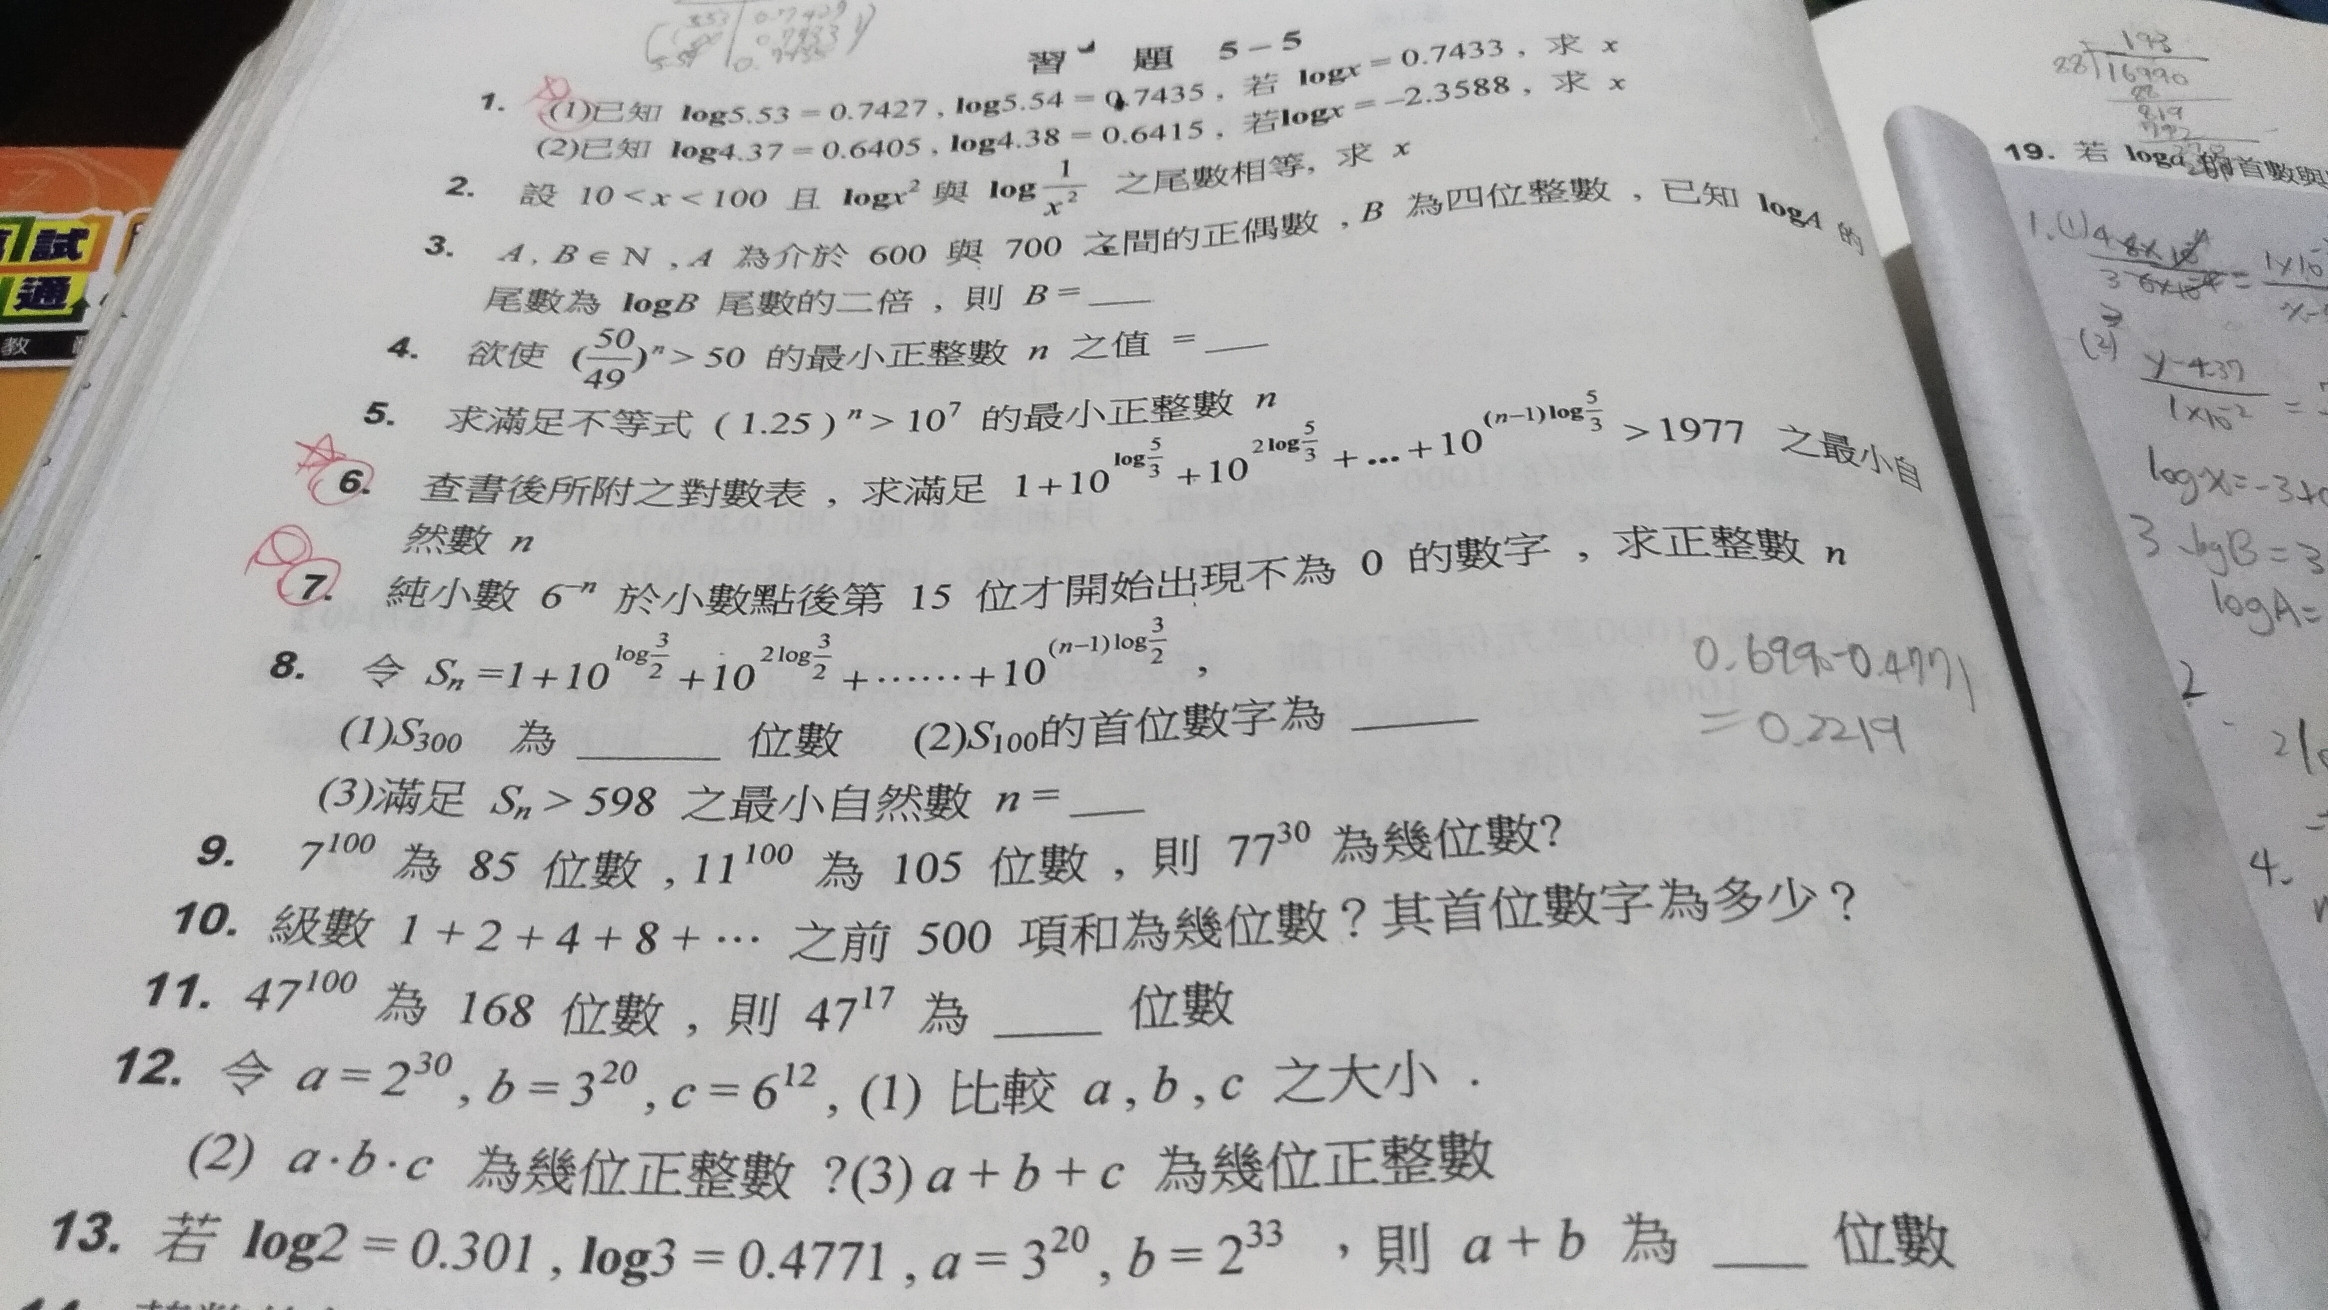 習 題 5-5
1. (1)已知 log5.53=0.7427,log5.54=0.7435,若 logx=0.7433,求 x
(2)已知 log4.37=0.6405,log4.38=0.6415,若logx=-2.3588,求 x
2. 設 10<x<100 且 logx² 與 log 1/x² 之尾數相等,求 x
3. A,B∈N,A 為介於 600 與 700 之間的正偶數,B 為四位整數,已知 logA 的
尾數為 logB 尾數的二倍,則 B=___
4. 欲使 (50/49)ⁿ>50 的最小正整數 n 之值 =___
5. 求滿足不等式 (1.25)ⁿ>10⁷ 的最小正整數 n
6. 查書後所附之對數表,求滿足 1+10^(log 5/3)+10^(2log 5/3)+…+10^((n-1)log 5/3)>1977 之最小自
然數 n
7. 純小數 6⁻ⁿ 於小數點後第 15 位才開始出現不為 0 的數字,求正整數 n
8. 令 Sₙ=1+10^(log 3/2)+10^(2log 3/2)+……+10^((n-1)log 3/2),
(1)S₃₀₀ 為 ______ 位數 (2)S₁₀₀的首位數字為 ______
(3)滿足 Sₙ>598 之最小自然數 n=___
9. 7¹⁰⁰ 為 85 位數,11¹⁰⁰ 為 105 位數,則 77³⁰ 為幾位數?
10. 級數 1+2+4+8+… 之前 500 項和為幾位數?其首位數字為多少?
11. 47¹⁰⁰ 為 168 位數,則 47¹⁷ 為 ____ 位數
12. 令 a=2³⁰,b=3²⁰,c=6¹²,(1) 比較 a,b,c 之大小.
(2) a·b·c 為幾位正整數 ?(3) a+b+c 為幾位正整數
13. 若 log2=0.301,log3=0.4771,a=3²⁰,b=2³³,則 a+b 為 ___ 位數
0.6990-0.4771
=0.2219
193
88 16990
88
819
792
19. 若 loga 的首數與
1.(1)
(2)
y-4.37
1×10⁻²
logx=-3+
3 logB=3
logA=
2
4.
試
通
教